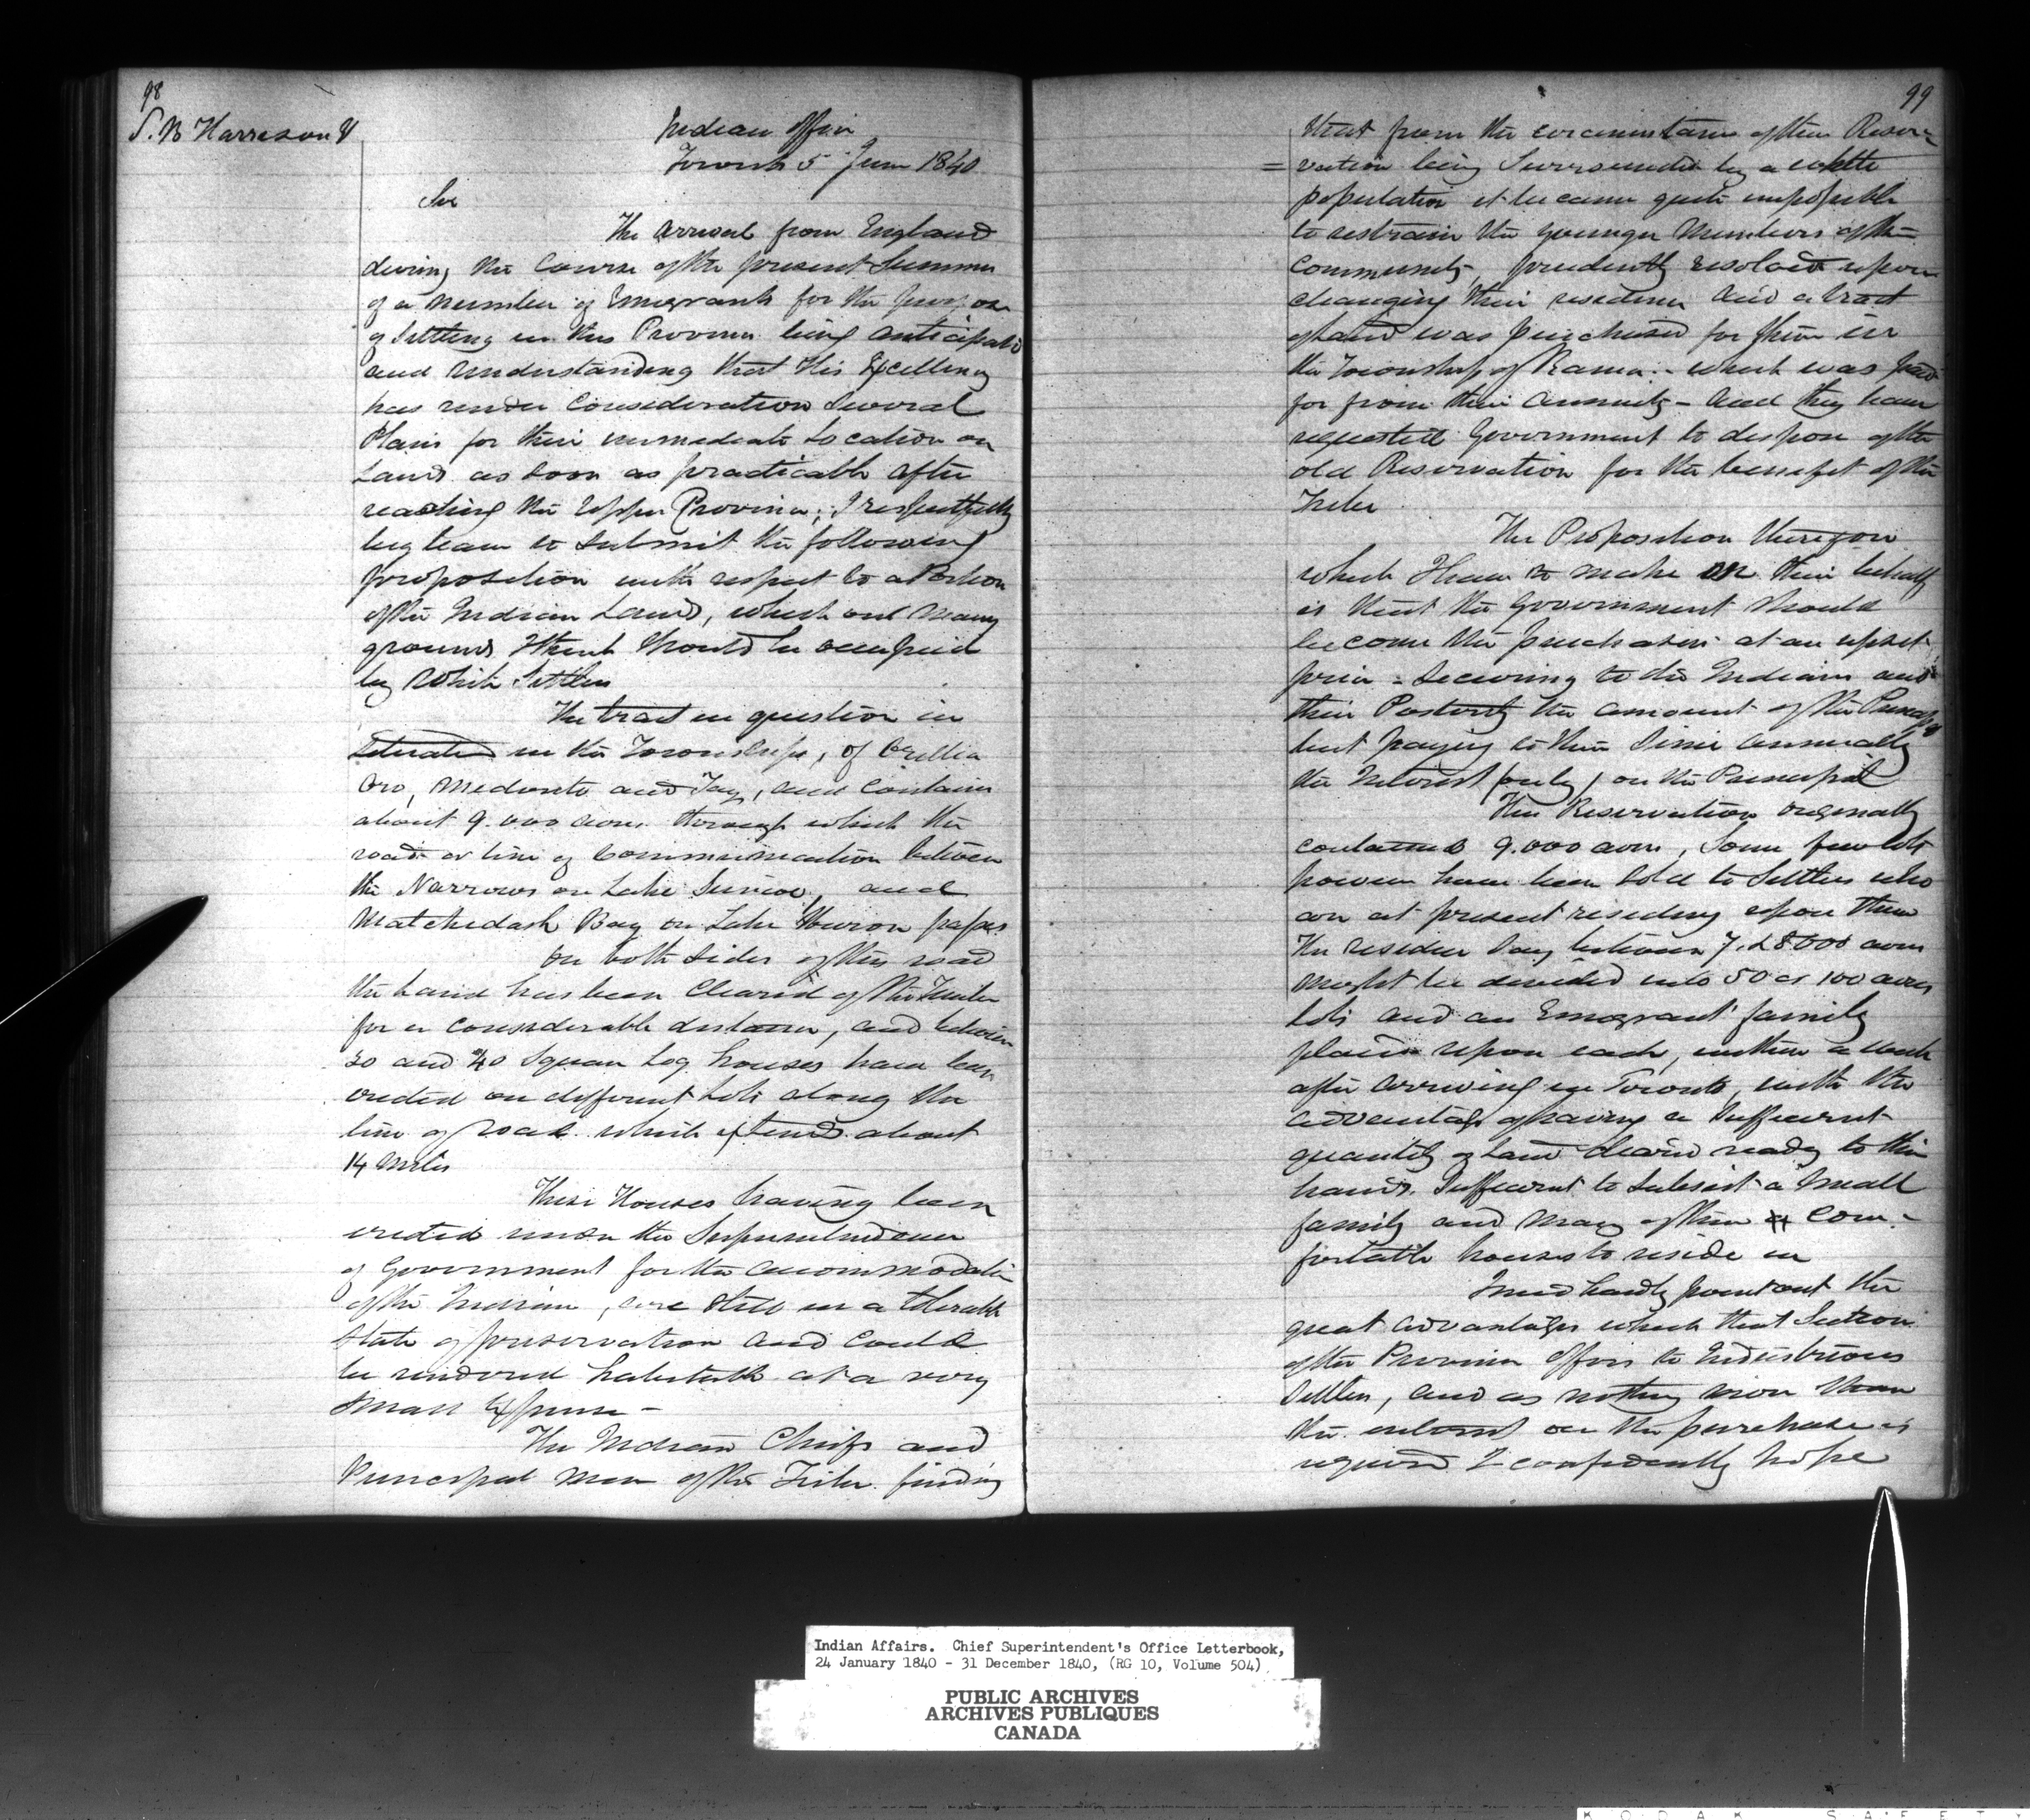 98
S. B Harrison
Indian Office
Toronto 5 June 1840
Sir
The arrival from England
during the Course of the present Summer
of a number of Emigrants for the purpose
of Settling in this Province being anticipated
and understanding that His Excellency
has under Consideration Several
Plans for their immediate Location on
Lands as soon as practicable after
reaching the Upper Province; I respectfully
beg leave to submit the following
proposition with respect to a Portion
of the Indian Lands, which on many
grounds I think should be occupied
by White Settlers
The tract in question is
situated in the Townships, of Orillia
Oro, Medonte and Tay, and Contains
about 9.000 acres through which the
road or line of Communication between
the Narrows on Lake Simcoe, and
Matchedash Bay on Lake Huron passes
On both sides of this road
the Land has been Cleared of the Timber
for a considerable distance, and between
30 and 40 Square Log houses have been
erected on different Lots along the
line of road which extends about
14 Miles
These Houses having been
erected under the Superintendence
of Government for the accommodation
of the Indians, are still in a tolerable
State of preservation and could
be rendered habitable at a very
small Expense -
The Indian Chiefs and
Principal Men of the Tribe finding
99
that from the circumstance of their Reser=
=vation being Surrounded by a white
population it became quite impossible
to restrain the younger Members of the
Community, prudently resolved upon
changing their residence and a tract
of Land was purchased for them in
the Township of Rama - which was paid
for from their Annuity - and they have
requested Government to dispose of the
old Reservation for the benefit of the
Tribe
The Proposition thereon
which I have to make on their behalf
is that the Government should
become the purchasers at an upset
price - securing to the Indians and
their Posterity the amount of the Principal
but paying to them annually
the Interest (only) on the Principal
This Reservation originally
contained 9.000 acres, Some few lots
however have been sold to Settlers who
are at present residing upon them
The residue say between 7. & 8000 acres
might be divided into 50 or 100 acres
lots and an Emigrant family
placed upon each, within a week
after arriving in Toronto, with the
advantage of having a sufficient
quantity of Land cleared ready to their
hands. Sufficient to subsist a small
family and many of them com-
fortable houses to reside in
I need hardly point out the
great advantages which that Section
of the Province offers to Industrious
Settlers, and as nothing more than
the interest on the purchase is
required I confidently hope
Indian Affairs. Chief Superintendent's Office Letterbook,
24 January 1840 - 31 December 1840, (RG 10, Volume 504)
PUBLIC ARCHIVES
ARCHIVES PUBLIQUES
CANADA
KODAK SAFETY